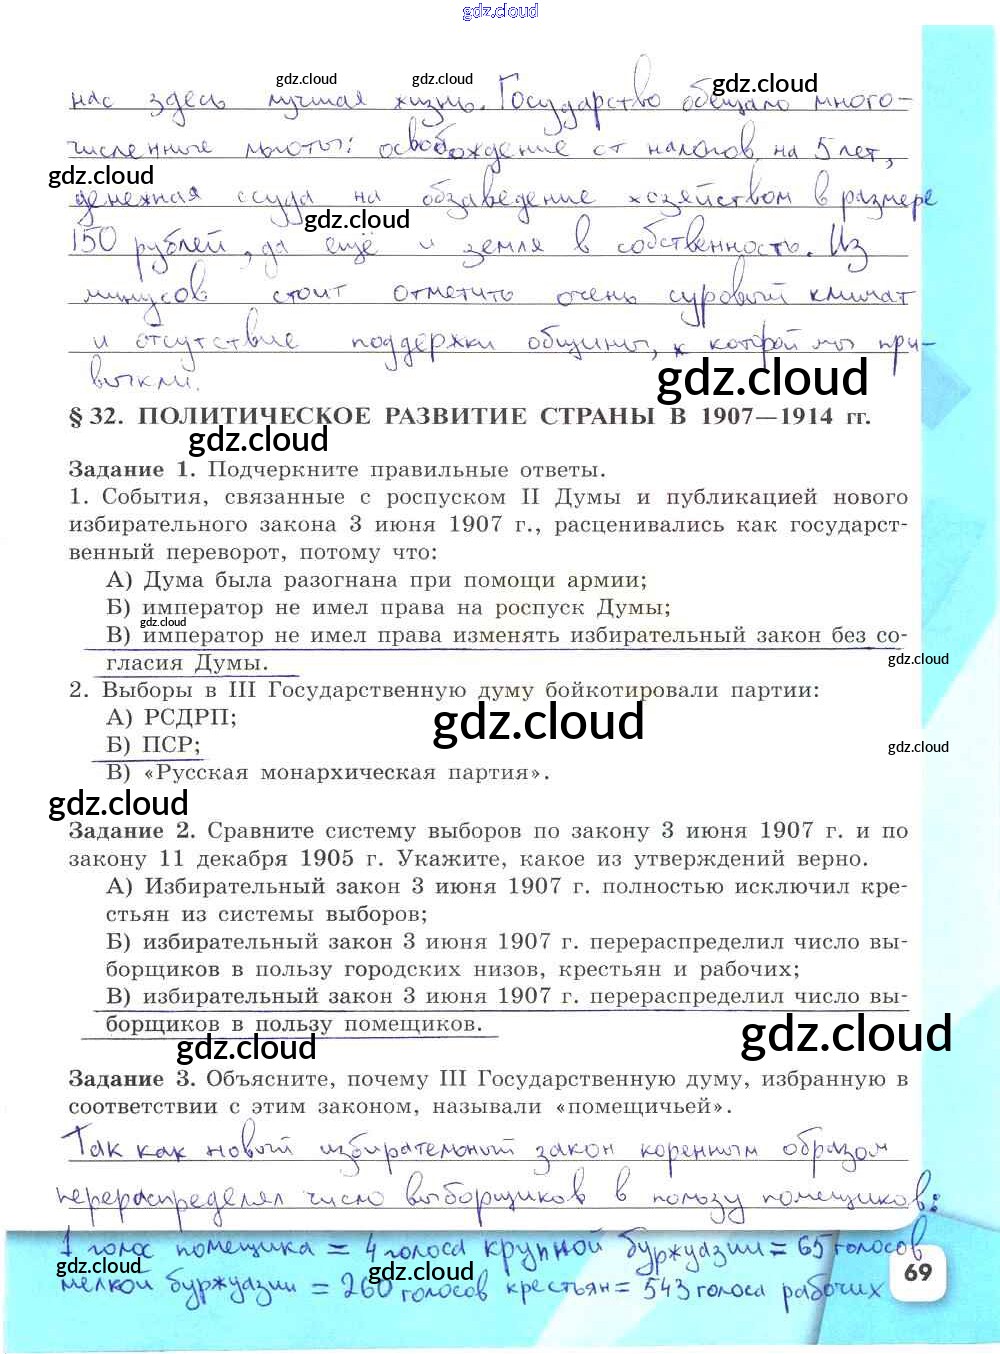 gdz.cloud
gdz.cloud gdz.cloud gdz.cloud
нас здесь лучшая жизнь. Государство обещало много-
численные льготы: освобождение от налогов на 5 лет,
gdz.cloud
денежная ссуда на обзаведение хозяйством в размере
gdz.cloud
150 рублей, да ещё и земля в собственность. Из
минусов стоит отметить очень суровый климат
и отсутствие поддержки общины, к которой мы при-
выкли.
gdz.cloud
§ 32. ПОЛИТИЧЕСКОЕ РАЗВИТИЕ СТРАНЫ В 1907—1914 гг.
gdz.cloud
Задание 1. Подчеркните правильные ответы.
1. События, связанные с роспуском II Думы и публикацией нового
избирательного закона 3 июня 1907 г., расценивались как государст-
венный переворот, потому что:
А) Дума была разогнана при помощи армии;
Б) император не имел права на роспуск Думы;
gdz.cloud
В) император не имел права изменять избирательный закон без со-
гласия Думы.
gdz.cloud
2. Выборы в III Государственную думу бойкотировали партии:
А) РСДРП;
gdz.cloud
Б) ПСР;
gdz.cloud
В) «Русская монархическая партия».
gdz.cloud
Задание 2. Сравните систему выборов по закону 3 июня 1907 г. и по
закону 11 декабря 1905 г. Укажите, какое из утверждений верно.
А) Избирательный закон 3 июня 1907 г. полностью исключил кре-
стьян из системы выборов;
Б) избирательный закон 3 июня 1907 г. перераспределил число вы-
борщиков в пользу городских низов, крестьян и рабочих;
В) избирательный закон 3 июня 1907 г. перераспределил число вы-
борщиков в пользу помещиков.
gdz.cloud
gdz.cloud
Задание 3. Объясните, почему III Государственную думу, избранную в
соответствии с этим законом, называли «помещичьей».
Так как новый избирательный закон коренным образом
перераспределял число выборщиков в пользу помещиков:
1 голос помещика = 4 голоса крупной буржуазии = 65 голосов
gdz.cloud gdz.cloud gdz.cloud
мелкой буржуазии = 260 голосов крестьян = 543 голоса рабочих
69